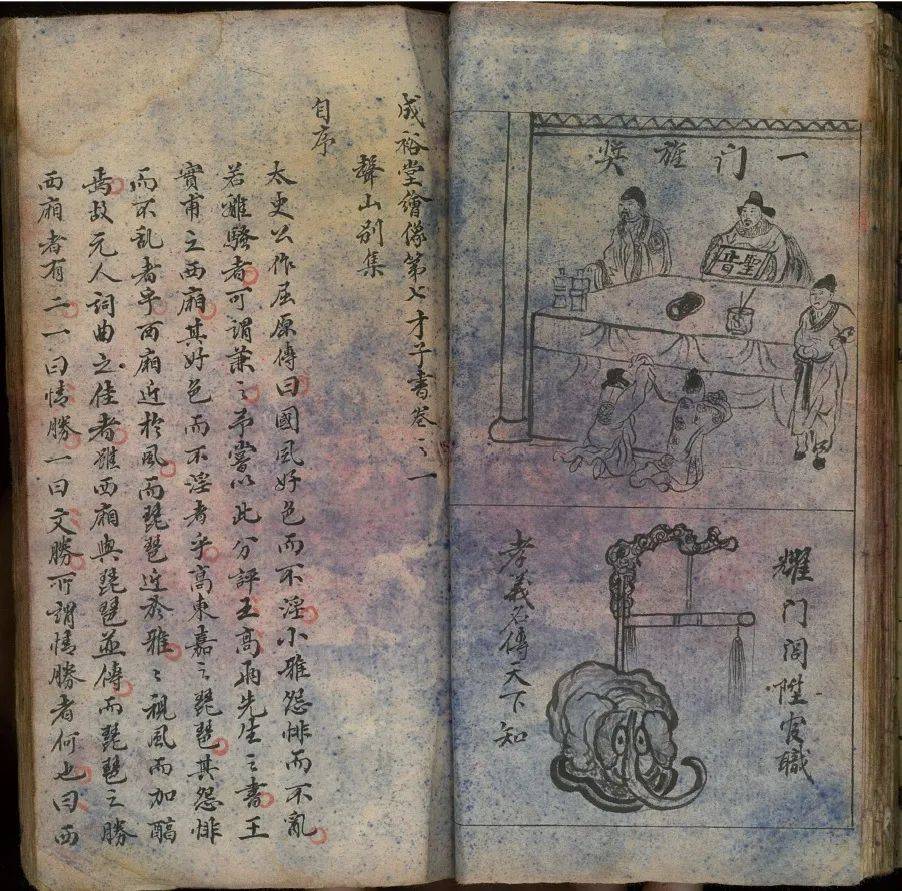 一门旌奖
聖旨
耀门闾陞官職
孝義名傳天下知
成裕堂繪像第七才子書卷之一
聲山别集
自序
太史公作屈原傳曰國風好色而不淫小雅怨悱而不亂
若離騷者可謂兼之予嘗以此分評王高兩先生之書王
實甫之西廂其好色而不淫者乎高東嘉之琵琶其怨悱
而不亂者乎西廂近於風而琵琶近於雅〻視風而加醇
焉故元人詞曲之佳者雖西廂與琵琶並傳而琵琶之勝
西廂者有二一曰情勝一曰文勝所謂情勝者何也曰西